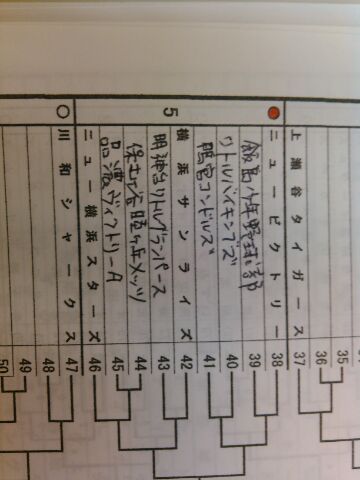 上瀬谷タイガース
37
ニュービクトリー
38
飯島少年野球部
39
リトルバイキングズ
40
鴨宮コンドルズ
41
横浜サンライズ
42
明神台リトルグランパース
43
保土ヶ谷陽ヶ丘メッツ
44
品濃ヴィクトリーA
45
ニュー横浜スターズ
46
川和シャークス
47
48
49
50
35
36
5